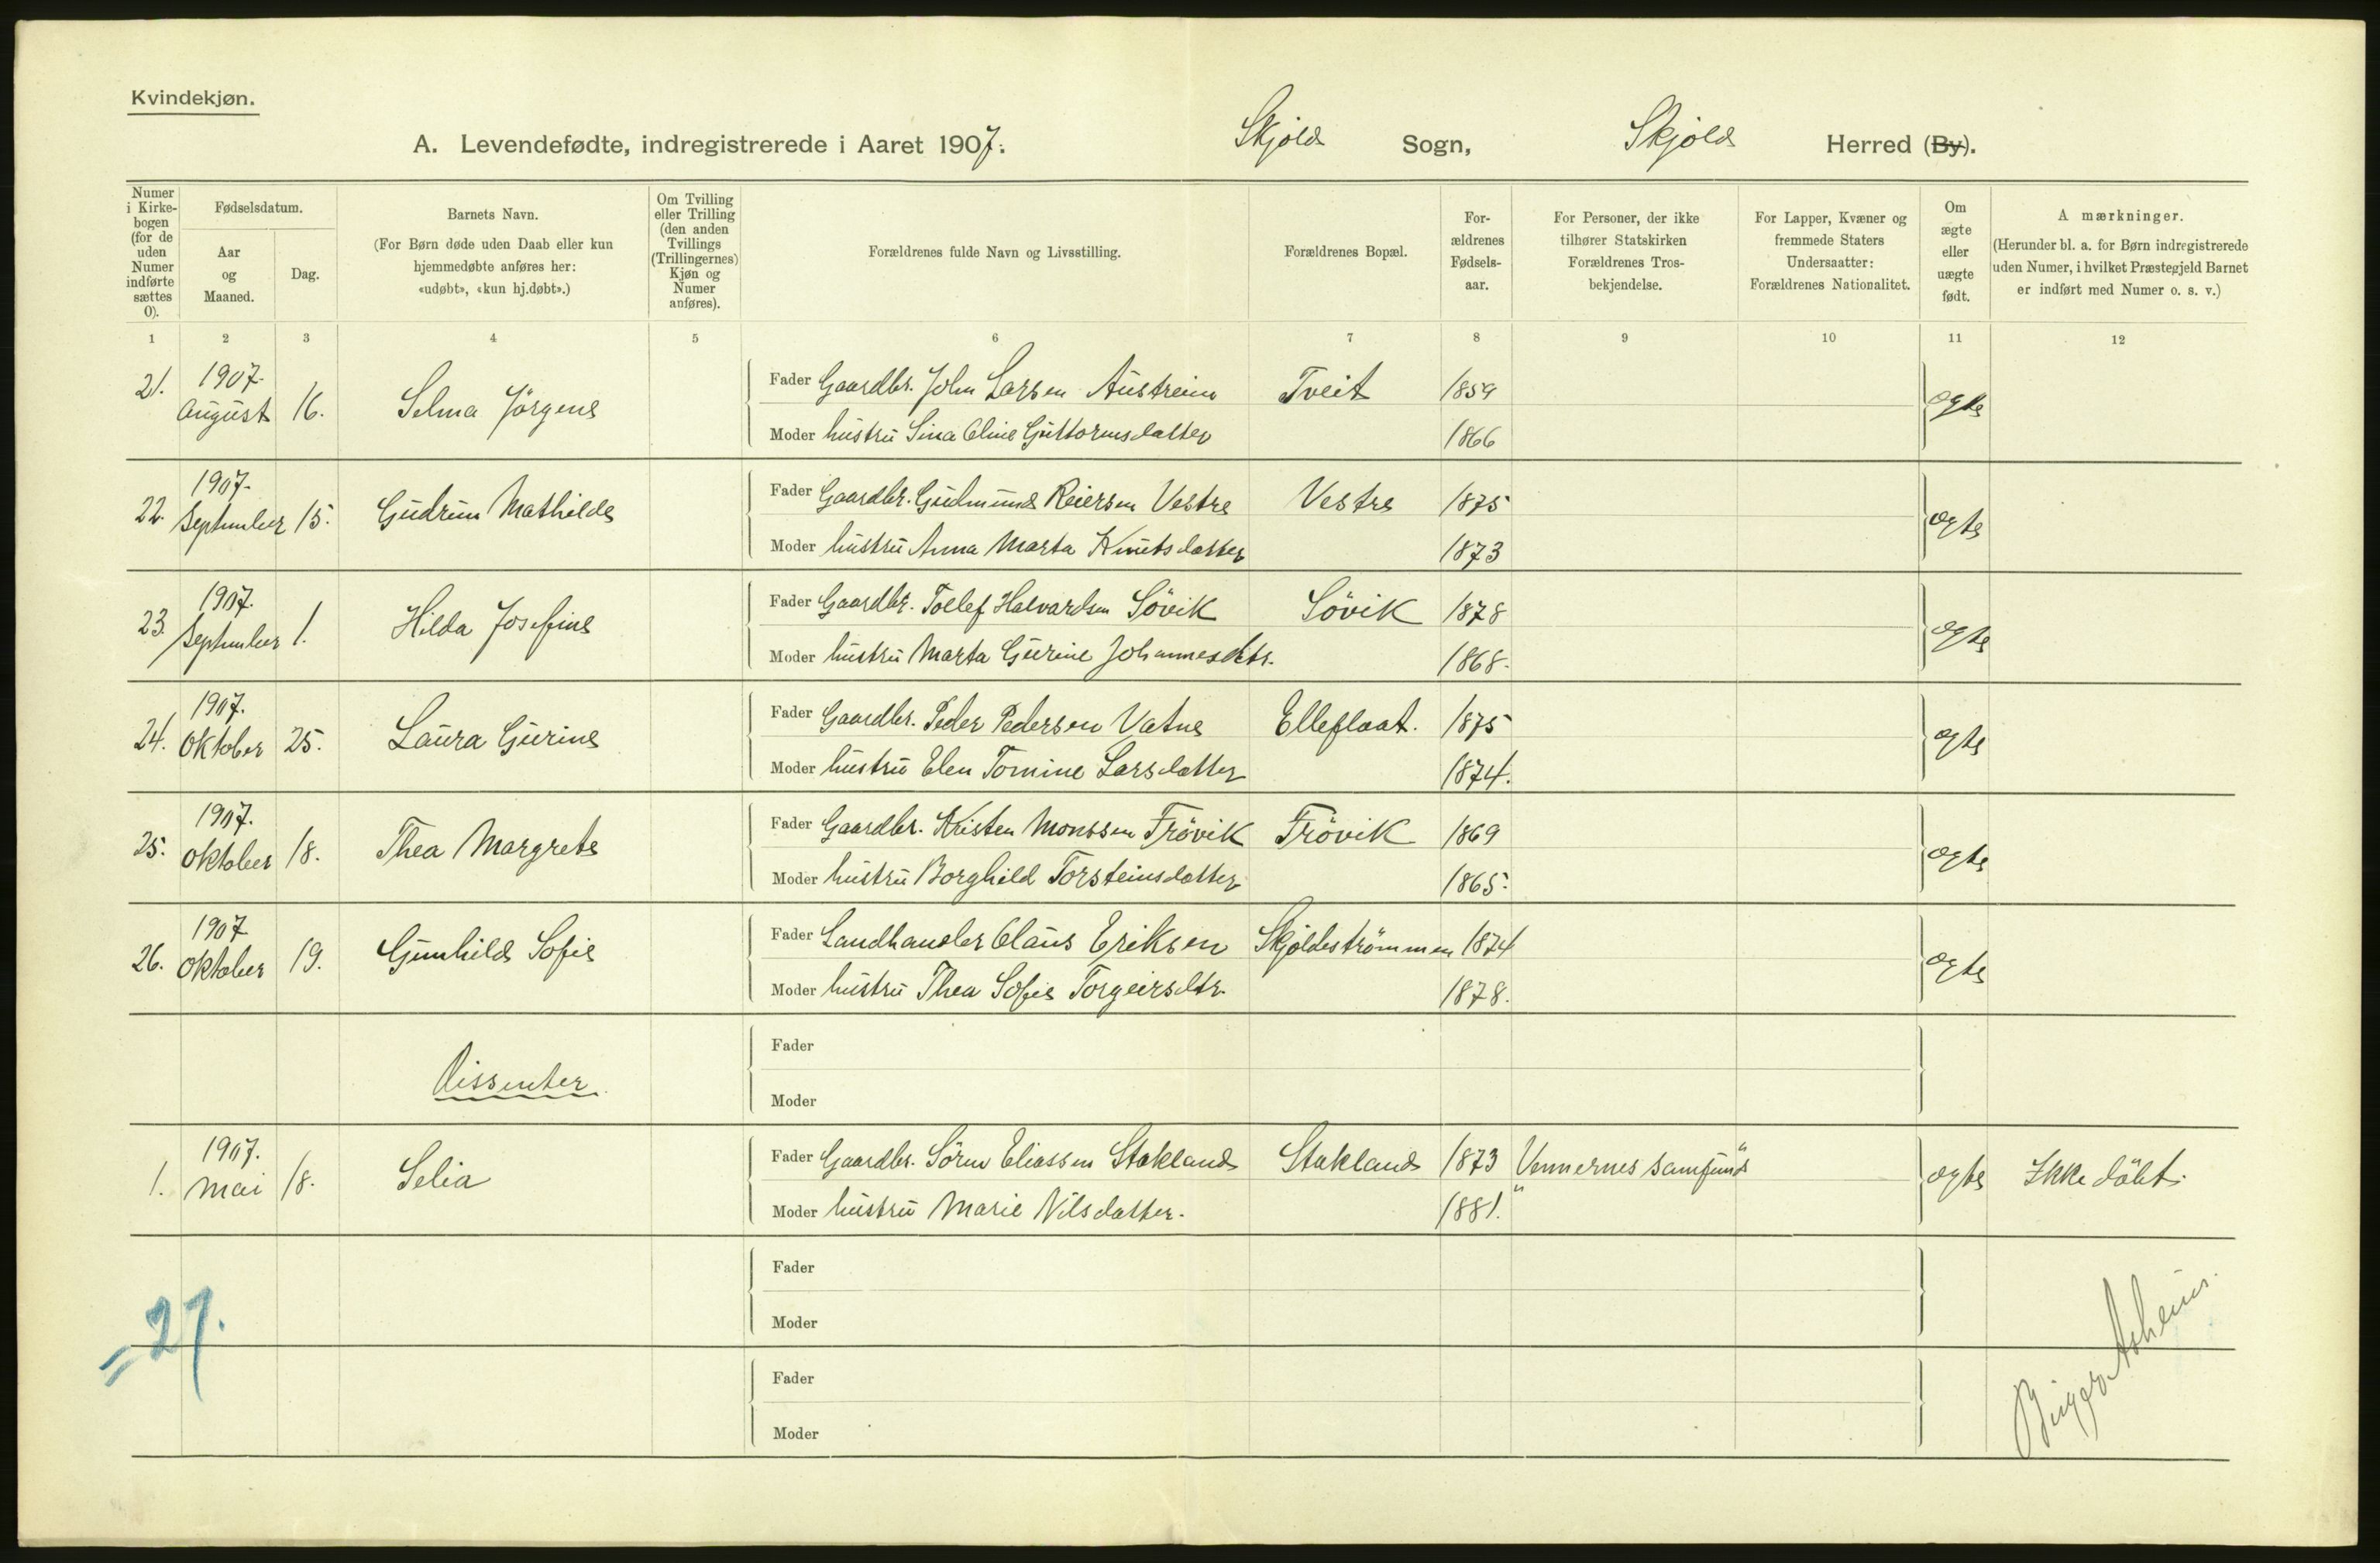 Kvindekjøn.
A. Levendefødte, indregistrerede i Aaret 1907. Skjold Sogn, Skjold Herred (By).
Numer i Kirkebogen (for de uden Numer indførte sættes 0).
Fødselsdatum.
Aar og Maaned.
Dag.
Barnets Navn.
(For Børn døde uden Daab eller kun hjemmedøbte anføres her: «udøbt», «kun hj.døbt».)
Om Tvilling eller Trilling (den anden Tvillings (Trillingernes) Kjøn og Numer anføres).
Forældrenes fulde Navn og Livsstilling.
Forældrenes Bopæl.
For-ældrenes Fødsels-aar.
For Personer, der ikke tilhører Statskirken Forældrenes Tros-bekjendelse.
For Lapper, Kvæner og fremmede Staters Undersaatter: Forældrenes Nationalitet.
Om ægte eller uægte født.
A mærkninger.
(Herunder bl. a. for Børn indregistrerede uden Numer, i hvilket Præstegjeld Barnet er indført med Numer o. s. v.)
1 2 3 4 5 6 7 8 9 10 11 12
21. 1907. August 16. Selma Jørgine Fader Gaardbr. John Larsen Austreim Tveit 1859 ægte
Moder hustru Sina Oline Guttormsdatter 1866
22. 1907. September 15. Gudrun Mathilde Fader Gaardbr. Gudmund Reiersen Vestre Vestre 1875 ægte
Moder hustru Anna Marta Knutsdatter 1873
23. 1907. September 1. Hilda Josefine Fader Gaardbr. Tollef Halvardsen Søvik Søvik 1878 ægte
Moder hustru Marta Gurine Johannesdtr. 1868.
24. 1907. Oktober 25. Laura Gurine Fader Gaardbr. Peder Pedersen Vatne Elleflaat. 1875 ægte
Moder hustru Elen Tomine Larsdatter 1874.
25. 1907. Oktober 18. Thea Margrete Fader Gaardbr. Kristen Monssen Frövik Frövik 1869 ægte
Moder hustru Borghild Torsteinsdatter 1865.
26. 1907 Oktober 19. Gunhild Sofie Fader Landhandler Claus Eriksen Skjoldeströmmen 1874 ægte
Moder hustru Thea Sofie Torgeirsdtr. 1878.
Fader
Dissenter.
Moder
1. 1907. Mai 18. Selia Fader Gaardbr. Sören Eliassen Stakland Stakland 1873 Vennernes samfund ægte Ikke döbt.
Moder hustru Marie Nilsdatter. 1881. " "
Fader
Moder
= 27.
Fader
Moder